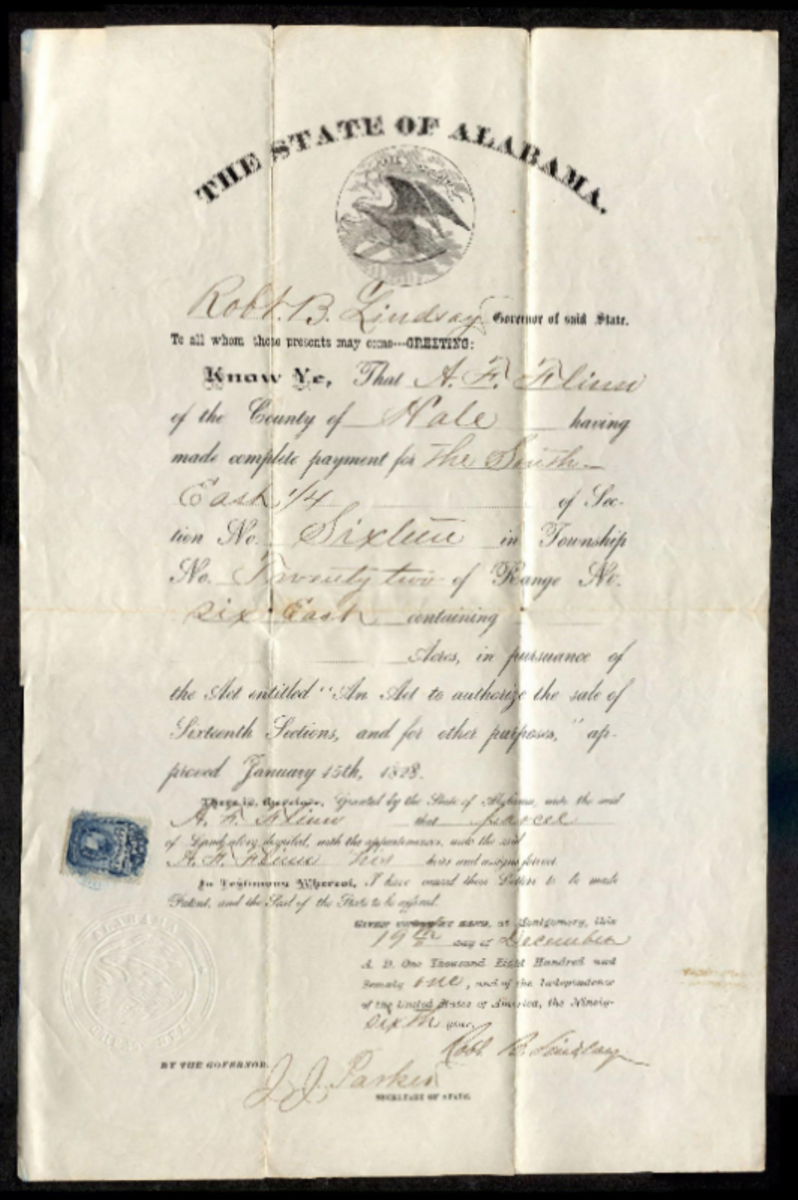 THE STATE OF ALABAMA.
Robt. B. Lindsay Governor of said State.
To all whom these presents may come---GREETING:
Know Ye, That A. F. Flinn
of the County of Hale having
made complete payment for the South
East 1/4 of Sec-
tion No. Sixteen in Township
No. Twenty two of Range No.
Six East containing
Acres, in pursuance of
the Act entitled "An Act to authorize the sale of
Sixteenth Sections, and for other purposes," ap-
proved January 15th, 1828.
There is, therefore, Granted by the State of Alabama, unto the said
A. F. Flinn that parcel
of Land, above described, with the appurtenances, unto the said
A. F. Flinn his heirs and assigns forever.
In Testimony Whereof, I have caused these Letters to be made
Patent, and the Seal of the State to be affixed.
GIVEN under my hand, at Montgomery, this
19th day of December
A. D. One Thousand Eight Hundred and
Seventy one, and of the Independence
of the United States of America, the Ninety-
Sixth year.
Robt B. Lindsay
BY THE GOVERNOR.
J. J. Parker
SECRETARY OF STATE.
ALABAMA
GREAT SEAL